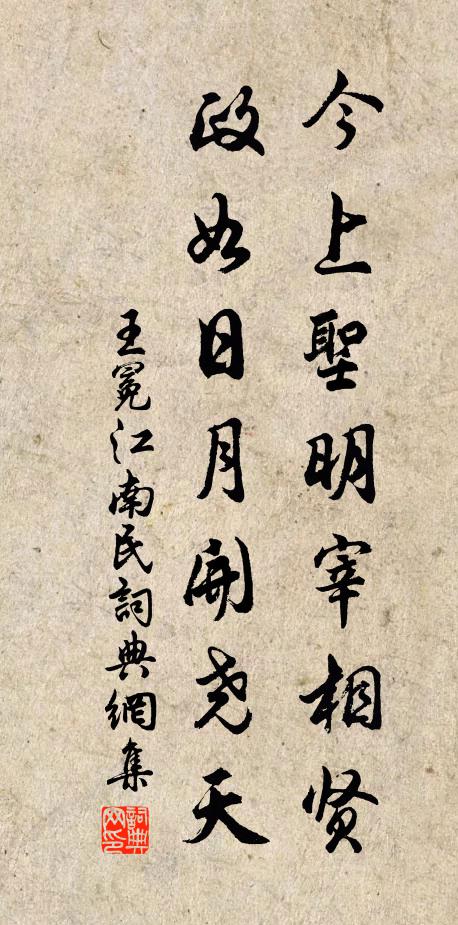 今上聖明宰相贤
政如日月開尧天
王冕江南民詞典網集
詞典网印